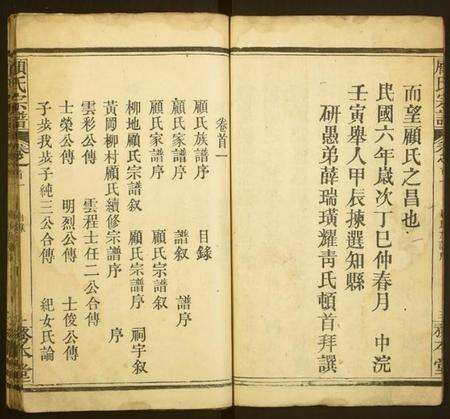 顧氏宗譜
而望顧氏之昌也
民國六年歲次丁巳仲春月 中浣
壬寅舉人甲辰揀選知縣
研愚弟薛瑞璜耀靑氏頓首拜譔
卷首一
顧氏族譜序 目錄
顧氏家譜序 譜叙 譜序
顧氏家譜序 顧氏宗譜叙
柳地顧氏宗譜叙 顧氏宗譜序 祠宇叙
黃岡柳村顧氏續修宗譜序 序
雲彩公傳 雲程士任二公合傳
士榮公傳 明烈公傳 士俊公傳
子步我菜子純三公合傳 紀女氏論
顧氏宗譜
務本堂